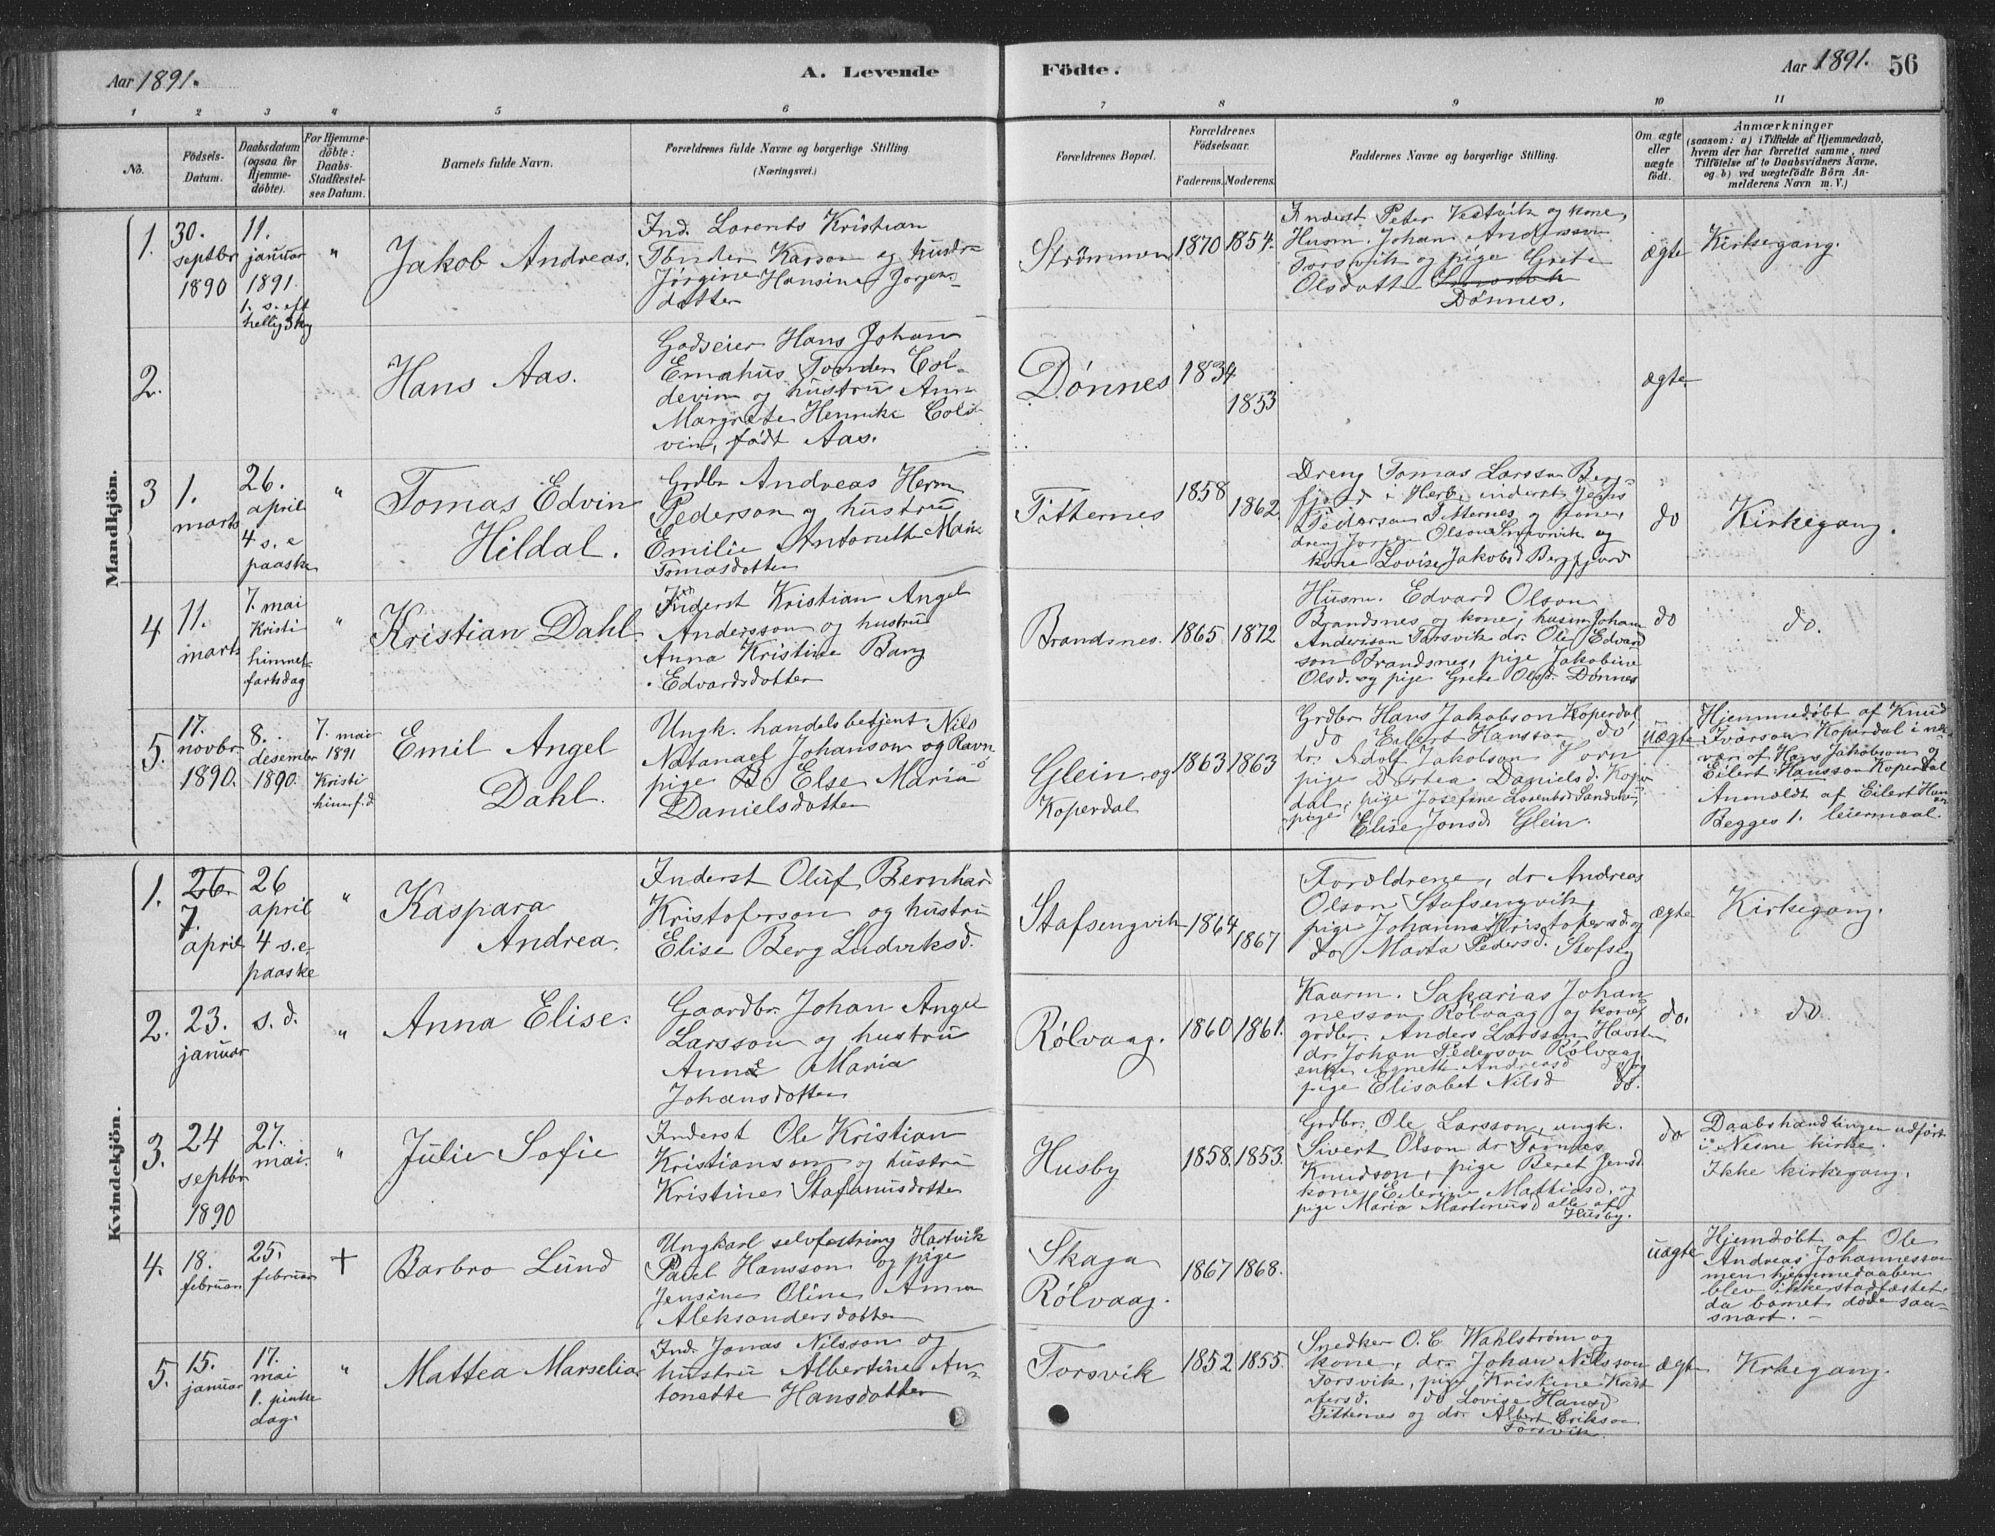 Aar 1891.
A. Levende Födte.
Aar 1891. 56
1 2 3 4 5 6 7 8 9 10 11
No.
Födsels-
Datum.
Daabsdatum
(ogsaa for
Hjemme-
döbte).
For Hjemme-
döbte:
Daabs-
Stadfæstel-
ses Datum.
Barnets fulde Navn.
Forældrenes fulde Navne og borgerlige Stilling
(Næringsvei.)
Forældrenes Bopæl.
Forældrenes
Födselsaar.
Faderens. Moderens.
Faddernes Navne og borgerlige Stilling.
Om ægte
eller
uægte
födt.
Anmærkninger
(saasom: a) i Tilfælde af Hjemmedaab,
hvem der har forrettet samme, med
Tilföielse af to Daabsvidners Navne,
og b) ved uægtefödte Börn An-
melderens Navn m. V.)
Mandkjön.
1.
30.
septbr
1890
11.
januar
1891.
1. s. eft
hellig 3 kg
"
Jakob Andreas.
Ind. Lorents Kristian
Tønder Karson og hustru
Jørgine Hansine Jørgens-
datter
Strømmen
1870 1854.
Inderst Peter Vestvik og kone,
Husm. Johan Andersson
Torsvik og pige Grete
Olsdatter
Dønnes.
ægte
Kirkegang.
2.
Hans Aas.
Godseier Hans Johan
Emahus Tønder Col-
devin og hustru Ann
Margrete Henrike Col-
vin, født Aas.
Dønnes
1834
1853
ægte
3
1.
marts
26.
april
4 s. e
paaske
"
Tomas Edvin
Hildal.
Grdbr Andreas Herm
Pederson og hustru
Emilie Antonette Marie
Tomasdotter
Titternes
1858
1862
Dreng Tomas Larssn Berg-
fjord i Herb, inderst Jens
Pederson Titternes og kone,
dreng Jørgen Olson Smevik og
kone Lovise Jakobsd Bergfjord
do
Kirkegang.
4
11.
marts
7. mai
Kristi
himmel-
fartsdag
"
Kristian Dahl.
Inderst Kristian Angel
Andersson og hustru
Anna Kristine Bang
Edvardsdotter
Brandsnes.
1865 1872
Husm. Edvard Olson
Brandsnes og kone, husm Johan
Anderson Torsvik dr. Ole Edvard
son Brandsnes, pige Jakobine
Olsd. og pige Grete Olsd. Dønnes
do
do.
5.
17.
novbr
1890.
8.
desember
1890.
7. mai
1891
Kristi
himf.d
Emil Angel
Dahl.
Ungk. handelsbetjent Nils
Natanael Johanson og Ravn
pige Else Maria
Danielsdotter
Glein og
Koperdal
1863 1863
Grdbr Hans Jakobson Koperdal
do Eilert Hansson do
dr. Adolf Jakobson Horn
pige Dortea Danielsd. Koper
dal, pige Josefine Lorentsd Sandvik,
pige Elise Jonsd Glein.
uægte
Hjemmedøbt af Knud
Ivarson Koperdal i nær-
vær af Hans Jakobson og
Eilert Hansson Koperdal
Anmeldt af Eilert Han
Begges 1. leiermaal.
Kvindekjön.
1.
26.
7.
april
26
april
4 s. e.
paaske
"
Kaspara
Andrea.
Inderst Oluf Bernhar
Kristoferson og hustru
Elise Berg Ludviksd.
Stafsengvik
1864
1867
Forældrene, dr Andreas
Olson Stafsengvik,
pige Johanna Kristofersd. og
do Marta Pedersd. Stafseg
ægte
Kirkegang.
2.
23.
januar
s. d.
"
Anna Elise.
Gaardbr. Johan Angel
Larsson og hustru
Anne Maria
Johansdotter
Rølvaag.
1860 1861.
Kaarm. Sakarias Johan
nesson Rølvaag og kone,
grdbr. Anders Larsson Havst
dr. Johan Pederson Rølvaag
enke Agnette Andreasd do og
pige Elisabet Nilsd do.
do.
do
3.
24
septbr
1890
27.
mai.
"
Julie Sofie
Inderst Ole Kristian
Kristianson og hustru
Kristine Stafanusdotter
Husby
1858. 1853.
Grdbr. Ole Larsson, ungk.
Sivert Olson dr Tomas
Knudson, pige Beret Jensd
kone Elerine Mattiasd, og
pige Maria Martinusd alle af
Husby.
do
Daabshandlingen udført
i Nesne kirke.
Ikke kirkegang.
4.
18.
februar
25.
februar
+
Barbro Lund
Ungkarl selvfostring Hartvik
Paul Hansson og pige
Jensine Oline Anna
Aleksandersdotter
Skaga
Rølvaag.
1867 1868.
uægte
Hjemdøbt af Ole
Andreas Johannesson
men hjemmedaaben
blev ikke stadfæstet
da barnet døde saa-
snart. –
5.
15.
januar
17.
mai
1. pinke
dag.
"
Mattea Marselia
Ind. Jonas Nilsson og
hustru Albertine An-
tonette Hansdotter
Torsvik
1852 1855.
Snedker O. C. Wahlstrøm og
kone, dr. Johan Nilsson
Torsvik, pige Kristine Krist
ofersd. do Lovise Hansd
Titternes og dr. Albert Erikson
Torsvik.
ægte
Kirkegang.